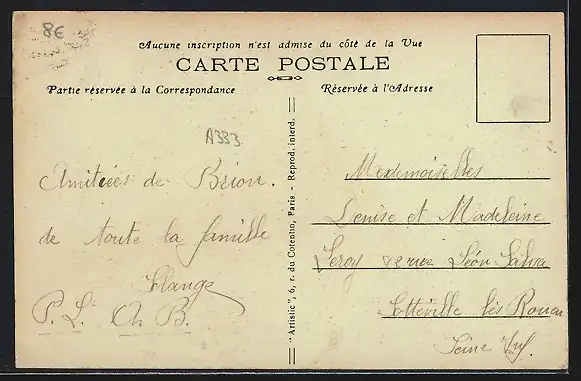 8€
Aucune inscription n'est admise du côté de la Vue
CARTE POSTALE
Partie réservée à la Correspondance
Réservée à l'Adresse
A333
"Artistic", 6, r. du Cotentin, Paris - Reprod. interd.
Amitiées de Brion.
de toute la famille
Solange
P. L. A B.
Mademoiselles
Denise et Madeleine
Leroy rue Léon Salva
Sotteville lès Rouen
Seine Inf.